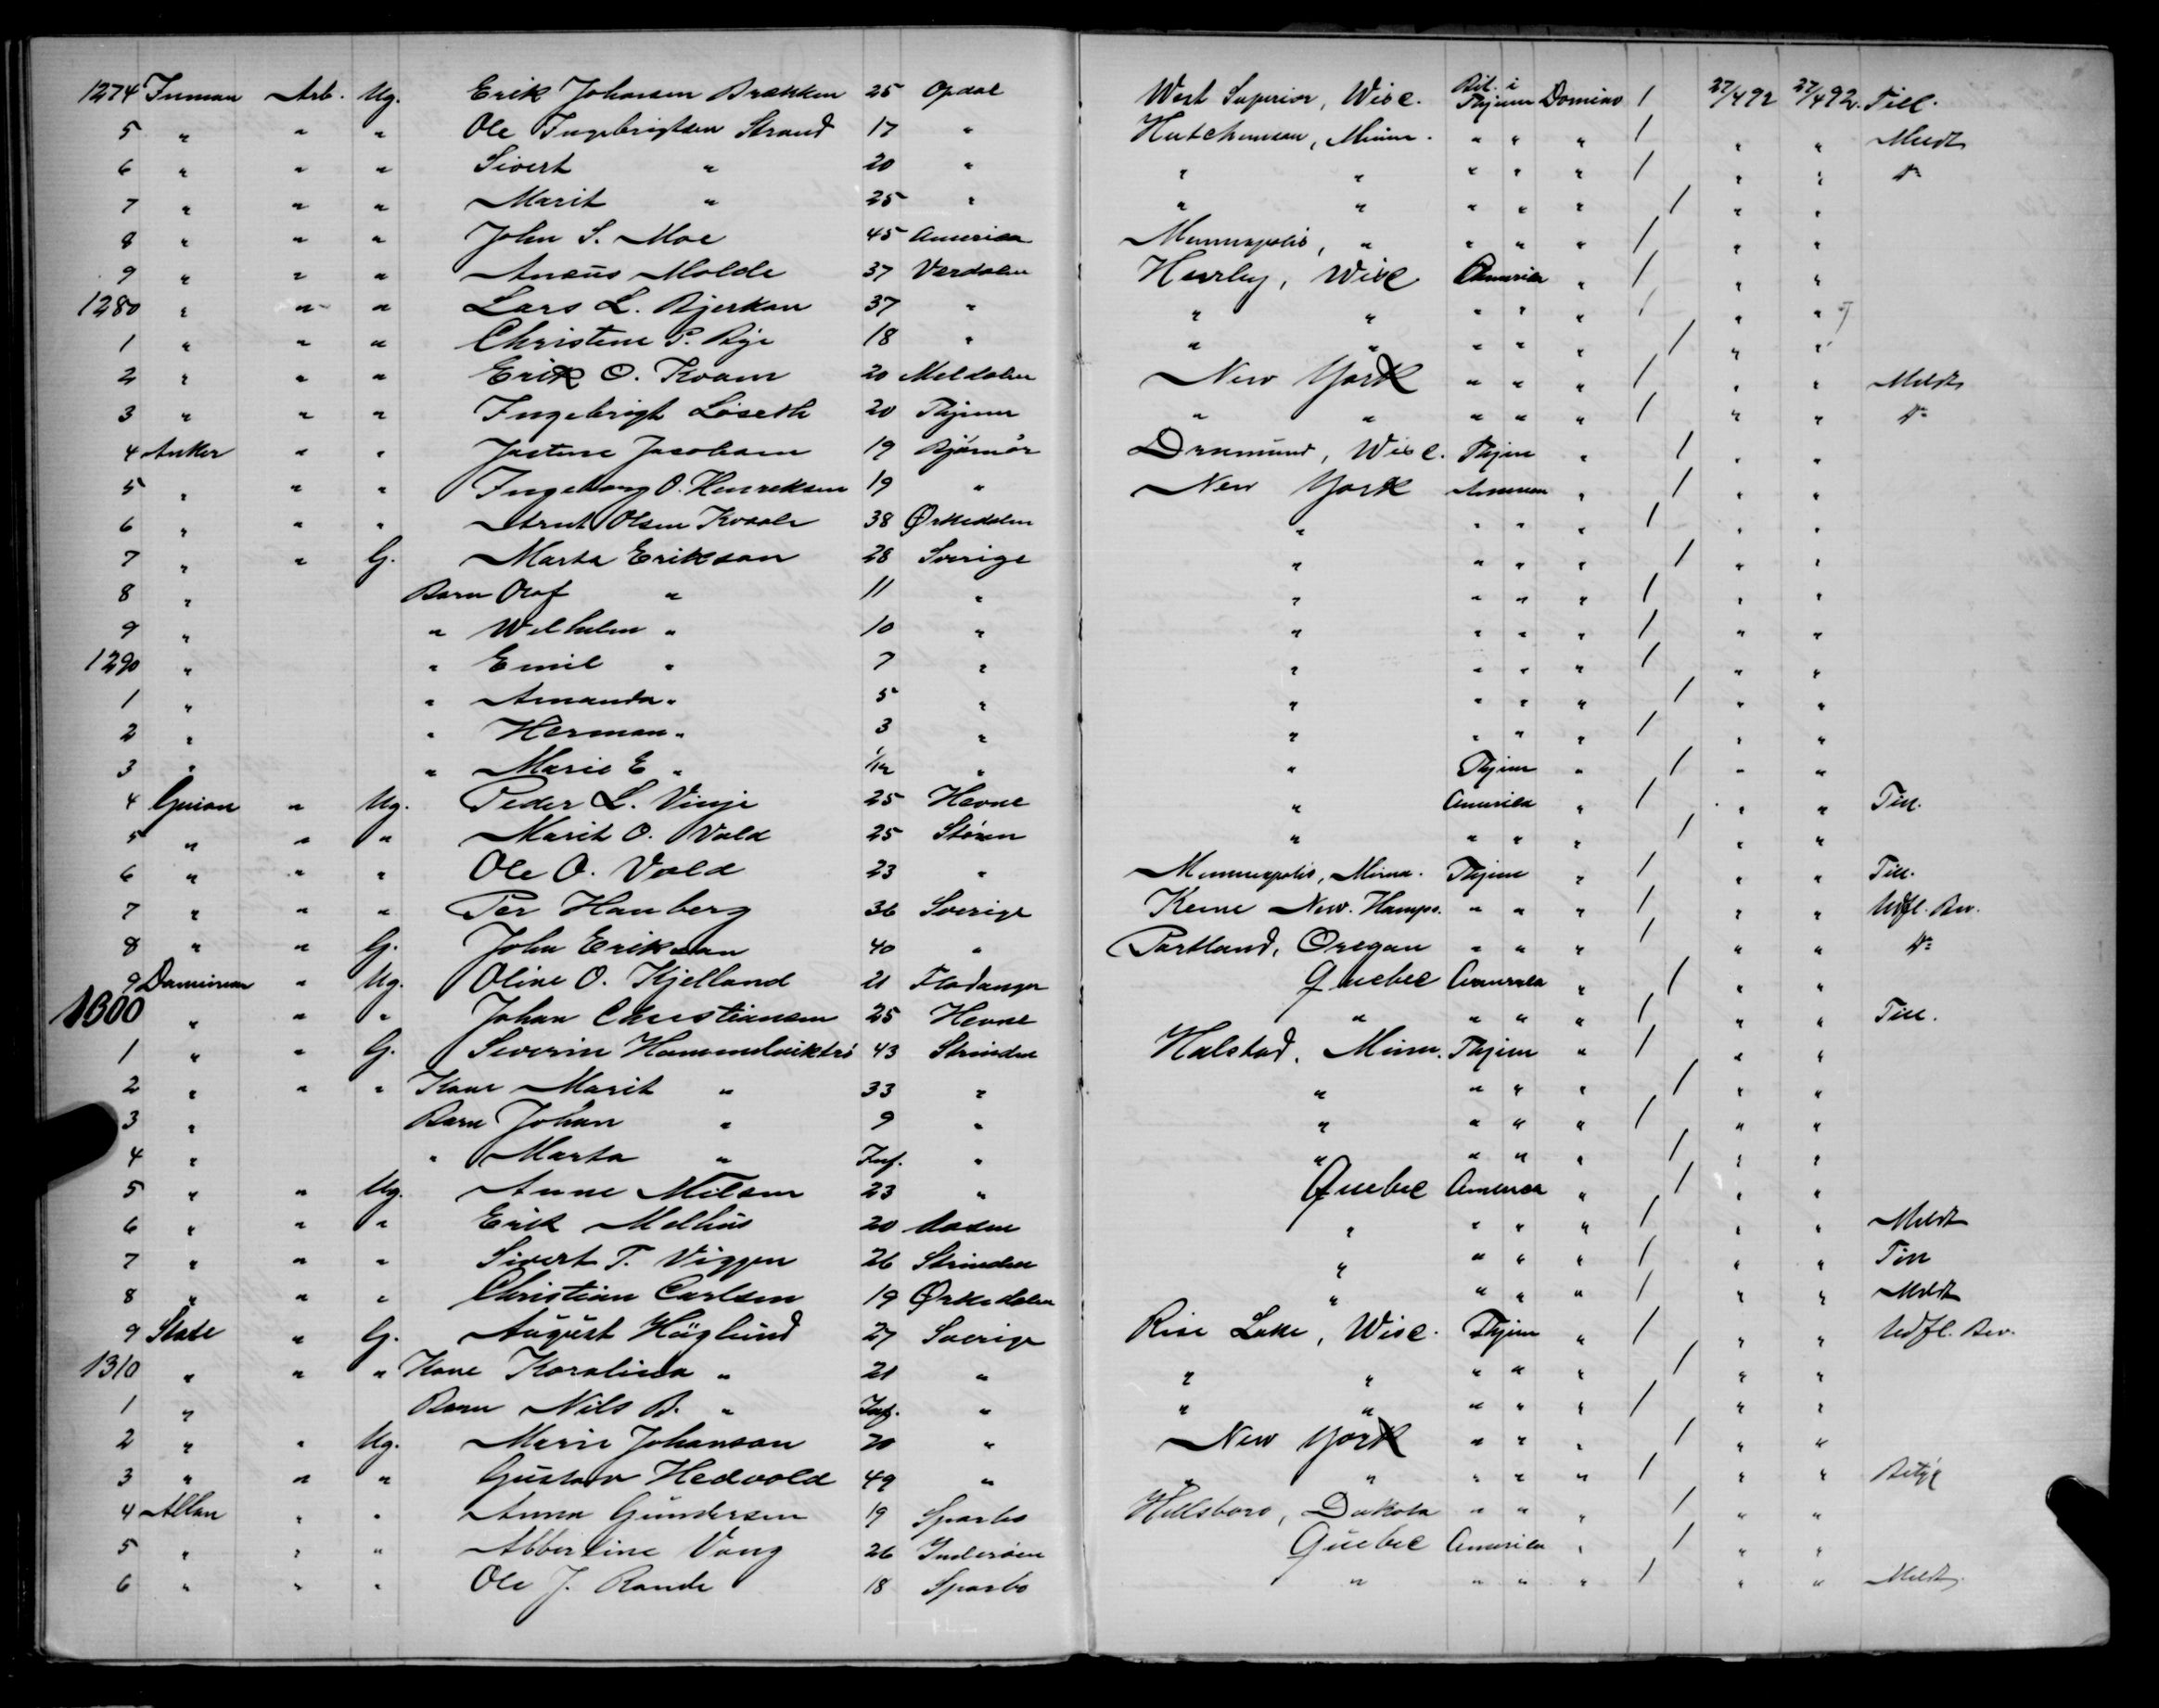 1274 Inman Arb. Ug. Erik Johansen Brækken 25 Opdal West Superior, Wisc. Bil. i Thjem Domino / 27/4 92 27/4 92. Till.
5 " " " Ole Ingebrigtsen Strand 17 " Hutchinson, Minn. " " " / " " Meldt
6 " " " Sivert " 20 " " " " " " / " " Do
7 " " " Marit " 25 " " " " " " / " "
8 " " " John S. Moe 45 America Minneapolis, " " " " / " "
9 " " " Anæus Molde 37 Værdalen Hurley, Wisc America " / " "
1280 " " " Lars L. Bjerkan 37 " " " " " " / " "
1 " " " Christine P. Rye 18 " " " " " " / " "
2 " " " Erik O. Kvam 20 Meldalen New York " " " / " " Meldt
3 " " " Ingebrigt Løseth 20 Thjem " " " " " / " " Do
4 Anker " " Justine Jacobsen 19 Bjørnør Drumund, Wisc. Thjem " / " "
5 " " " Ingeborg O. Henriksen 19 " New York America " / " "
6 " " " Arnt Olsen Kvaale 38 Ørkedalen " " " " / " "
7 " " G. Marta Erikson 28 Sverige " " " " / " "
8 " Barn Olof " 11 " " " " " / " "
9 " " Wilhelm " 10 " " " " " / " "
1290 " " Emil " 7 " " " " " / " "
1 " " Amanda " 5 " " " " " / " "
2 " " Herman " 3 " " " " " / " "
3 " " Marie E " 1/12 " " Thjem " / " "
4 Guion " Ug. Peder L. Vinje 25 Hevne " America " / " " Till.
5 " " " Marit O. Vold 25 Støren " " " " / " "
6 " " " Ole O. Vold 23 " Minneapolis, Minn. Thjem " / " " Till.
7 " " " Per Hanberg 36 Sverige Keene New. Hamps. " " " / " " Udfl. Bev.
8 " " G. John Erikson 40 " Portland, Oregon " " " / " " Do
9 Dominion " Ug. Oline O. Kjelland 21 Fladanger Quebec America " / " "
1300 " " " Johan Christiansen 25 Hevne " " " " / " " Till.
1 " " G. Severin 43 Strinden Halstad, Minn. Thjem " / " "
2 " " " Kone Marit " 33 " " " " " / " "
3 " Barn Johan " 9 " " " " " / " "
4 " " Marta " Inf. " " " " " / " "
5 " " Ug. Anne Nilsen 23 " Quebec America " / " "
6 " " " Erik Melhus 20 Aasen " " " " / " " Meldt
7 " " " Sivert T. Viggen 26 Strinden " " " " / " " Till
8 " " " Christian Carlsen 19 Ørkedalen " " " " / " " Meldt
9 State " G. August Höglund 27 Sverige Rise Lake, Wisc. Thjem " / " " Udfl. Bev.
1310 " " " Kone Karolina " 21 " " " " " " / " "
1 " Barn Nils B. " Inf. " " " " " " / " "
2 " " Ug. Marie Johanson 20 " New York " " " / " "
3 " " " Gustav Hedvold 49 " " " " " " / " "
4 Allan " " Anna Gundersen 19 Sparbo Hillsboro, Dakota " " " / " "
5 " " " Albertine Vang 26 Inderøen Quebec America " / " "
6 " " " Ole J. Rande 18 Sparbo " " " " / " " Meldt